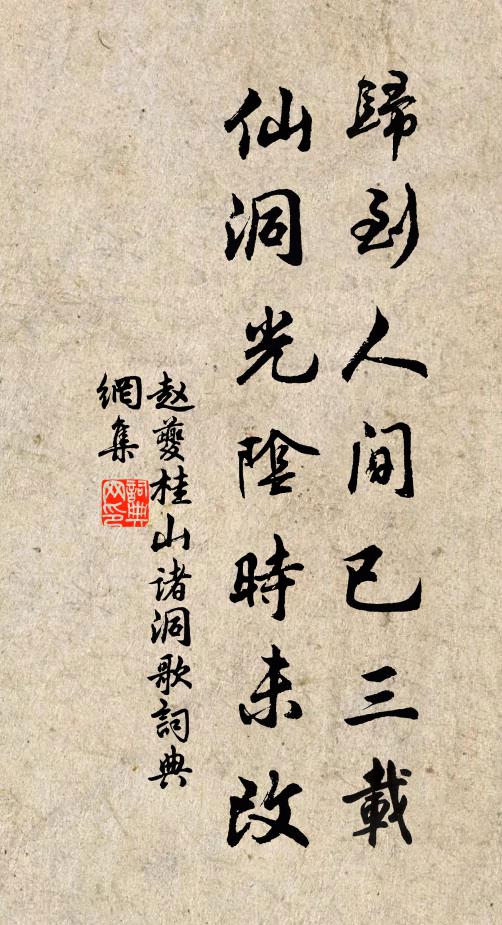 歸到人間已三載
仙洞光陰時未改
赵夔桂山诸洞歌詞典
網集
詞典
网印